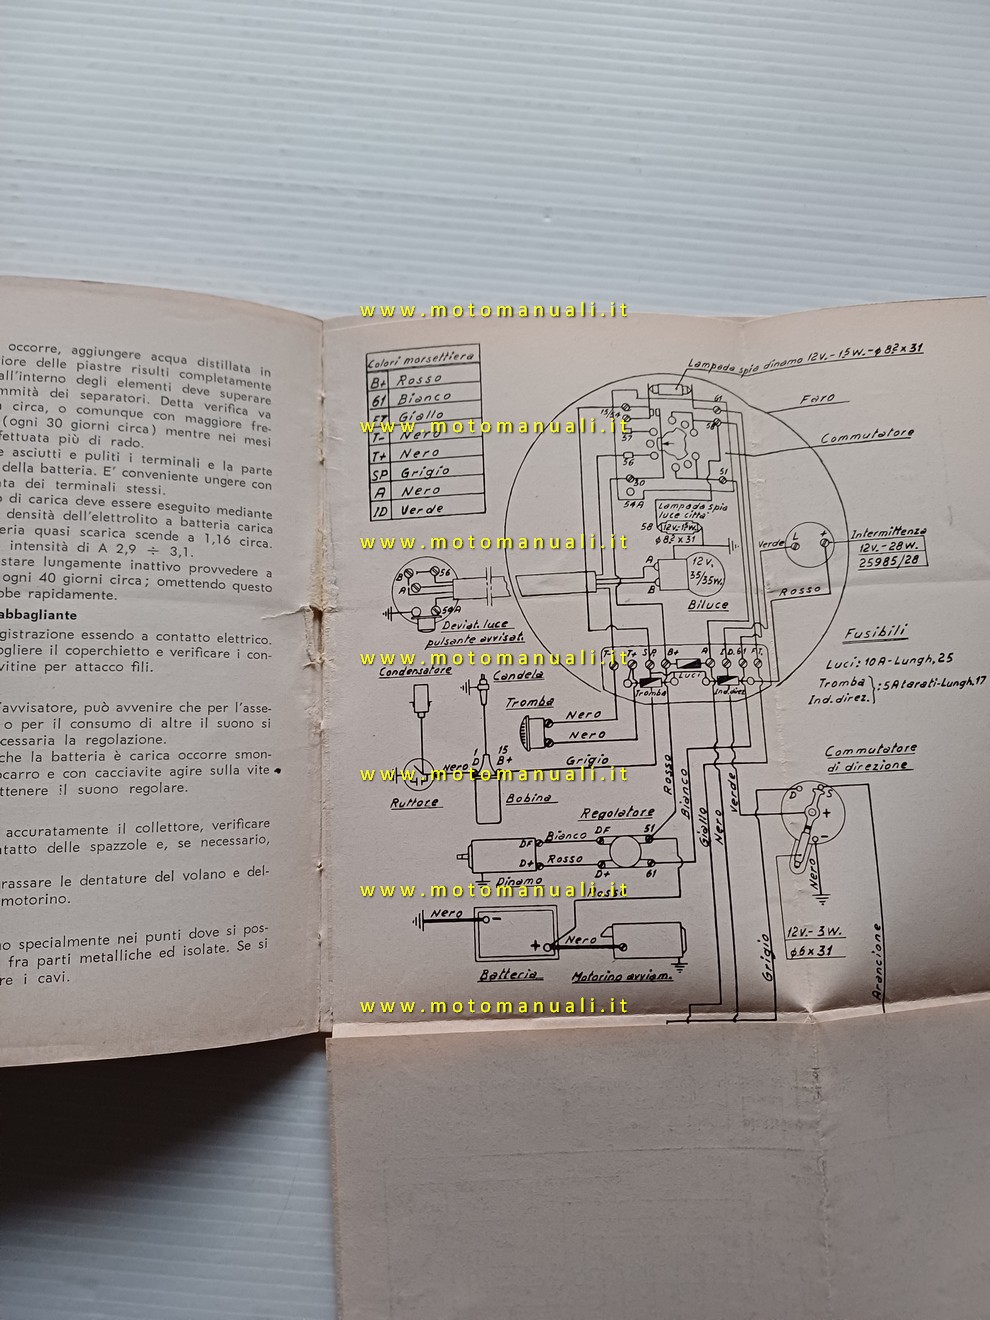 www.motomanuali.it
occorre, aggiungere acqua distillata in
iore delle piastre risulti completamente
all'interno degli elementi deve superare
mmità dei separatori. Detta verifica va
circa, o comunque con maggiore fre-
(ogni 30 giorni circa) mentre nei mesi
fettuata più di rado.
e asciutti e puliti i terminali e la parte
della batteria. E' conveniente ungere con
ata dei terminali stessi.
o di carica deve essere eseguito mediante
densità dell'elettrolito a batteria carica
eria quasi scarica scende a 1,16 circa.
intensità di A 2,9 ÷ 3,1.
stare lungamente inattivo provvedere a
ogni 40 giorni circa; omettendo questo
bbe rapidamente.
abbagliante
gistrazione essendo a contatto elettrico.
ogliere il coperchietto e verificare i con-
vitine per attacco fili.
'avvisatore, può avvenire che per l'asse-
o per il consumo di altre il suono si
ecessaria la regolazione.
che la batteria è carica occorre smon-
ocarro e con cacciavite agire sulla vite
ttenere il suono regolare.
accuratamente il collettore, verificare
ntatto delle spazzole e, se necessario,
rassare le dentature del volano e del-
motorino.
no specialmente nei punti dove si pos-
fra parti metalliche ed isolate. Se si
re i cavi.
Colori morsettiera
B+ Rosso
61 Bianco
FT Giallo
T- Nero
www.motomanuali.it
T+ Nero
SP Grigio
A Nero
ID Verde
www.motomanuali.it
Lampada spia dinamo 12V.-15W.-φ8,2x31
Faro
Commutatore
15/54
61
58
57
56
30
51
54A
Lampada spia
luce città
58
12V.-1,5W.
φ8,2x31
Verde
L
+
Intermittenza
12V.-28W.
25985/28
Rosso
A
B
12V.
35/35W.
Biluce
B
56
A
54A
Deviat. luce
pulsante avvisat.
www.motomanuali.it
T- T+ S.P. B+ A I.D. 61 F.T.
Tromba
Luci
Ind.direz.
Fusibili
Luci: 10A-Lungh.25
Tromba
Ind.direz. : 5A tarati-Lungh.17
Condensatore
Candela
Tromba
Nero
Nero
Grigio
1
D
15
B+
Nero
Ruttore
Bobina
www.motomanuali.it
Rosso
Bianco
Giallo
Nero
Verde
Commutatore
di direzione
D
S
+
-
Nero
12V.-3W.
φ6x31
Grigio
Arancione
Regolatore
Bianco
DF
DF
51
D+
Rosso
D+
61
Dinamo
Rosso
www.motomanuali.it
Nero
-
+
Nero
Batteria
Motorino avviam.
www.motomanuali.it